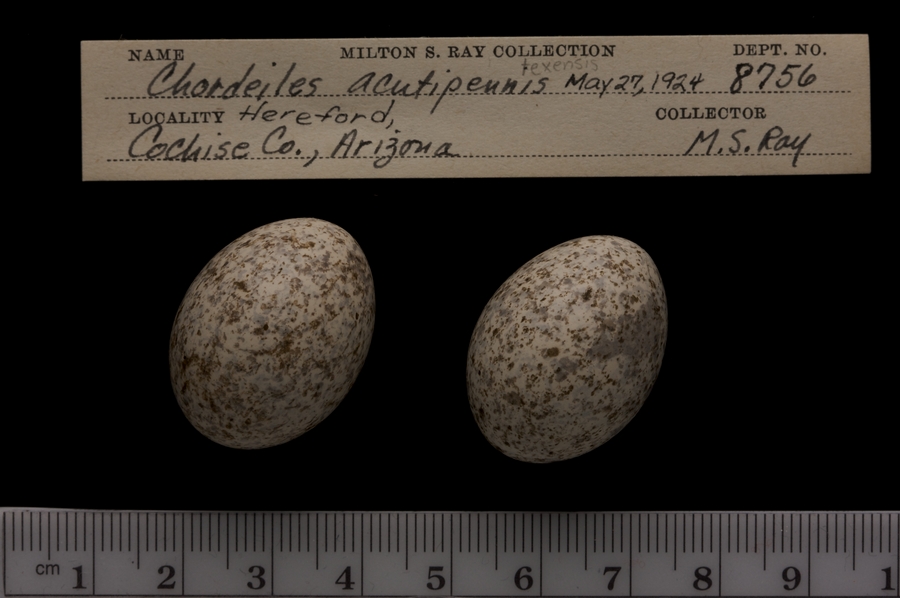 NAME MILTON S. RAY COLLECTION DEPT. NO.
texensis
Chordeiles acutipennis May 27, 1924 8756
LOCALITY Hereford, COLLECTOR
Cochise Co., Arizona M.S. Ray
cm 1 2 3 4 5 6 7 8 9 1